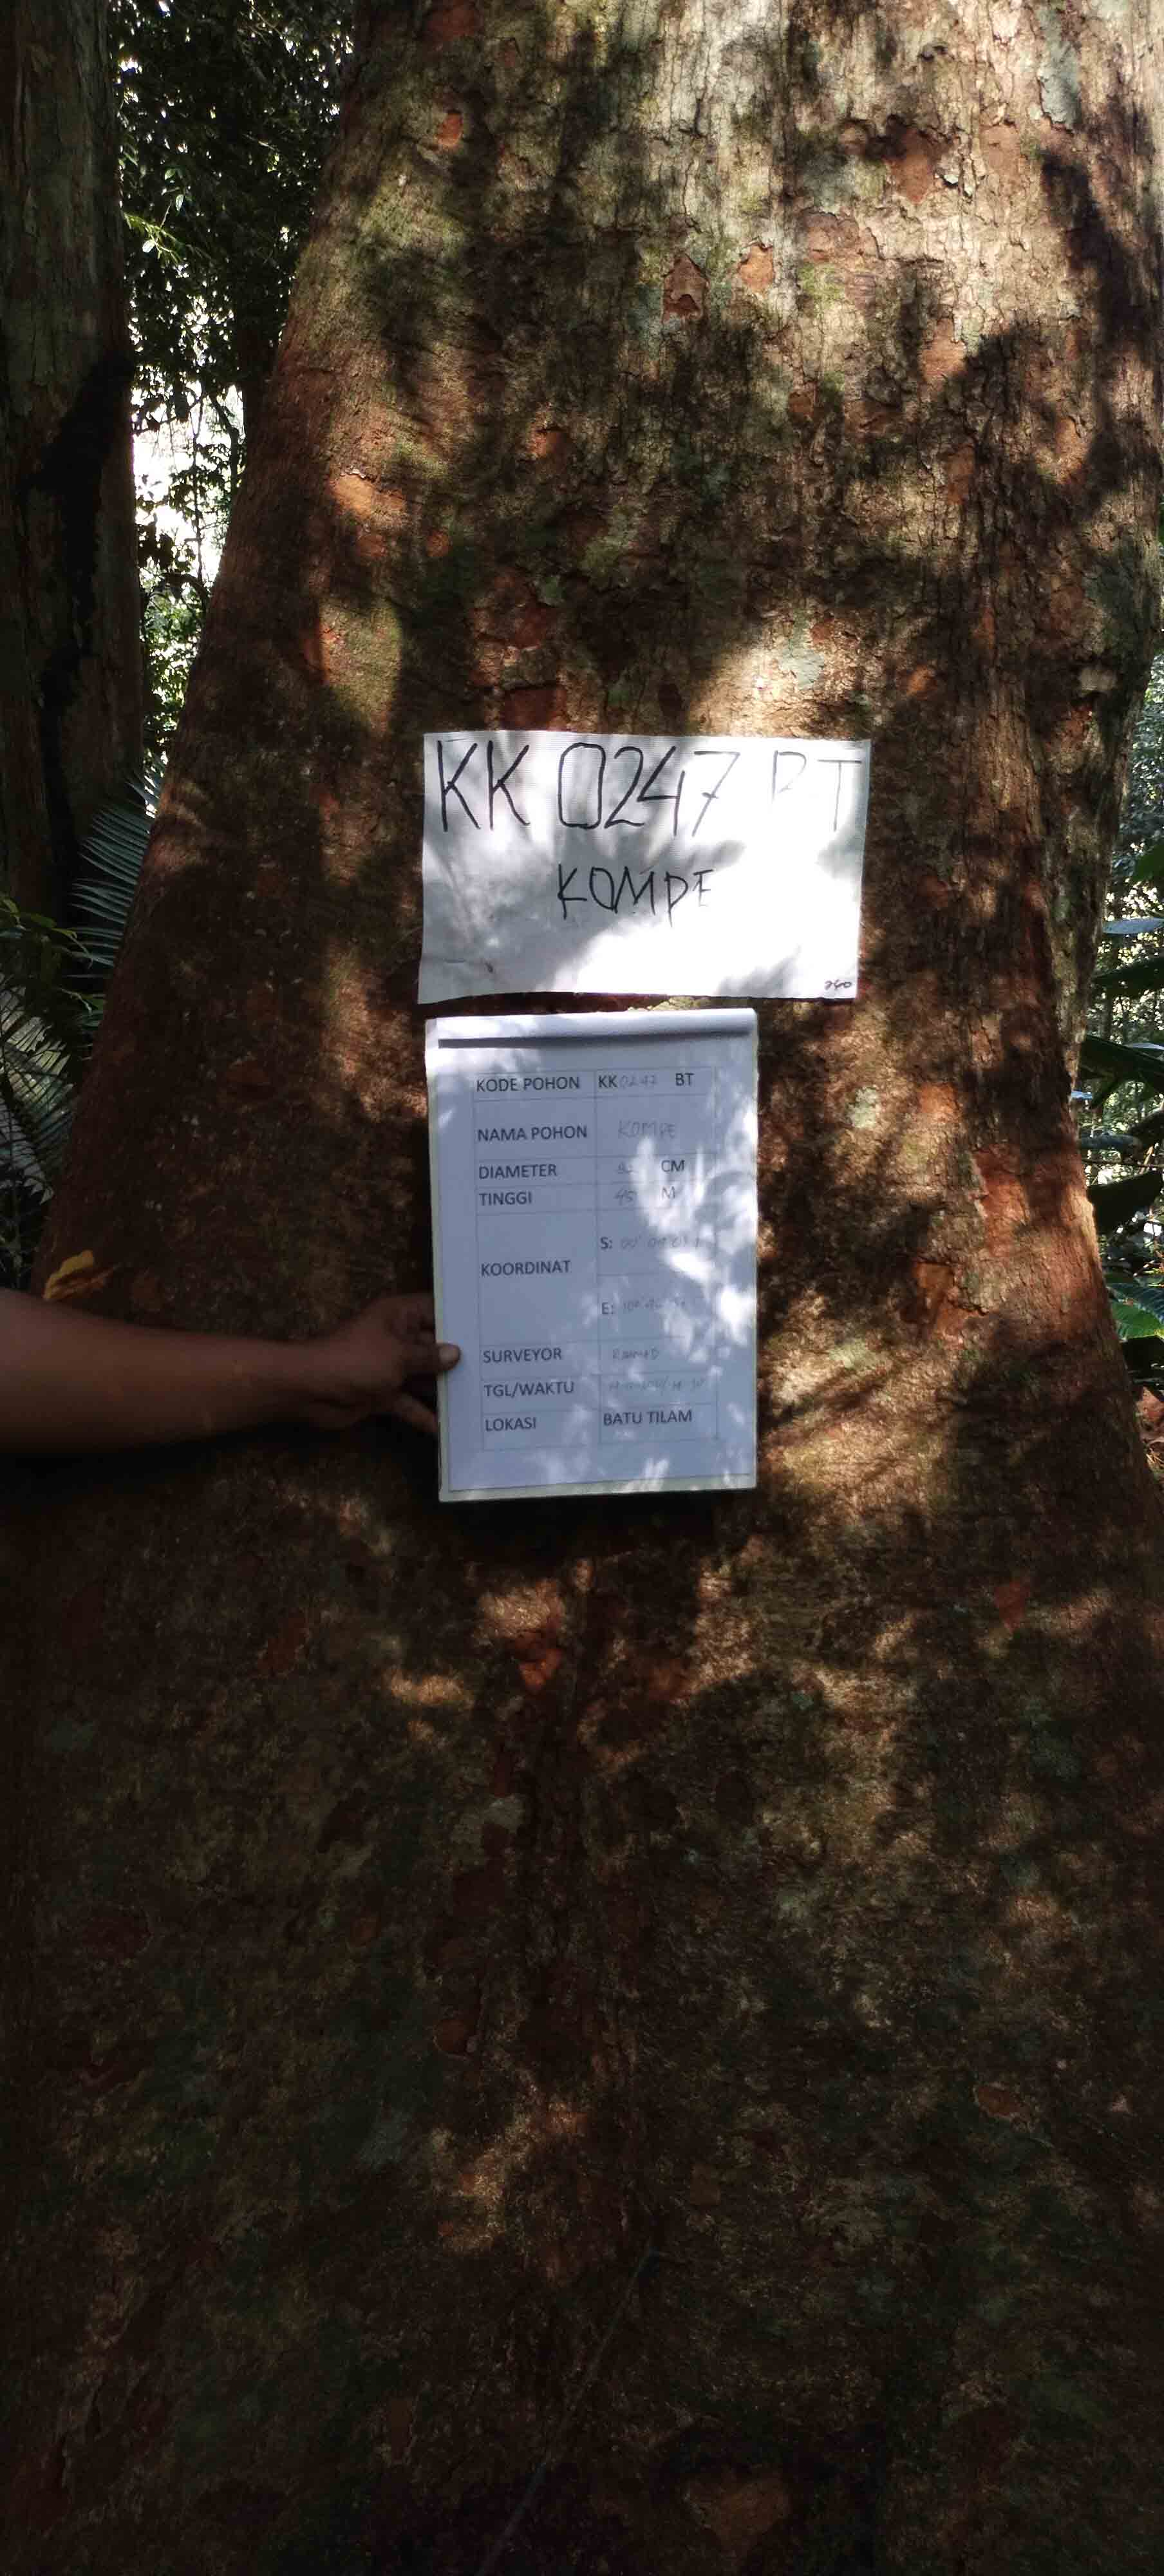 KK 0247 BT
KOMPE
240
KODE POHON KK 0247 BT
NAMA POHON KOMPE
DIAMETER CM
TINGGI 45 M
KOORDINAT
S:
E:
SURVEYOR
TGL/WAKTU
LOKASI BATU TILAM